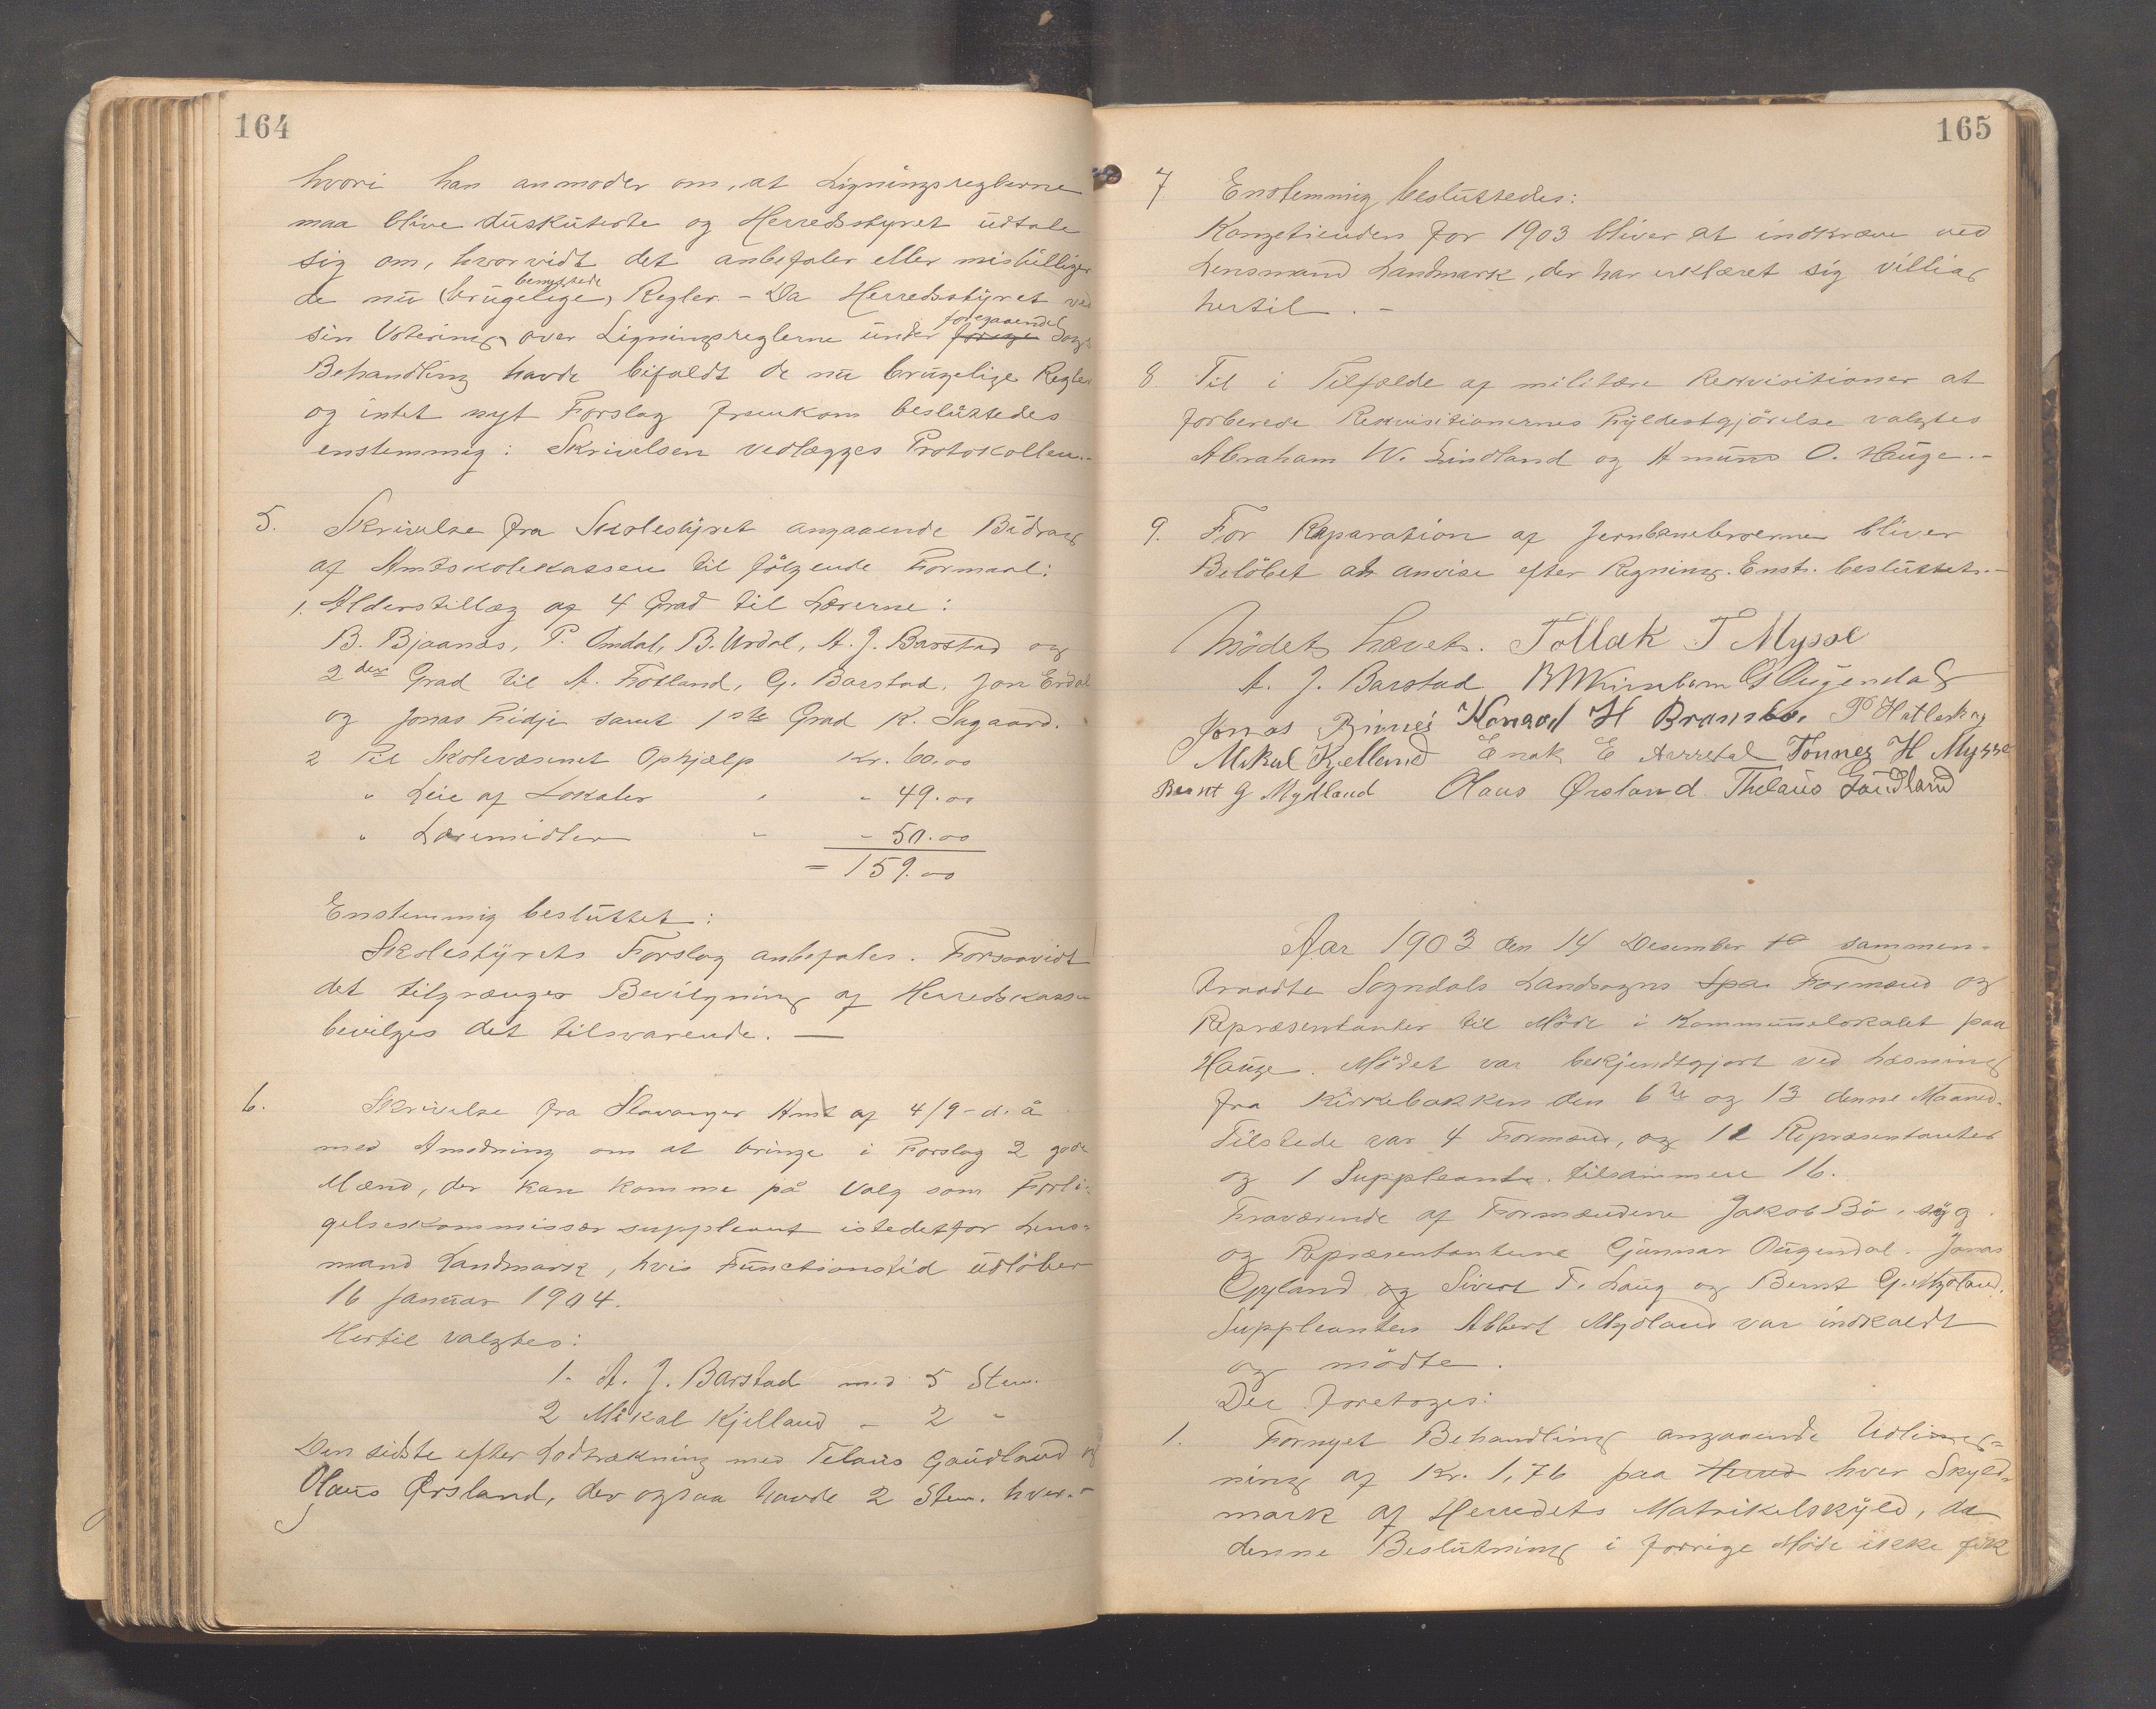 164
hvori han anmoder om, at Ligningsreglerne
maa blive duskuterte og Herredsstyret udtale
sig om, hvorvidt det anbefaler eller misbilliger
benyttede
de nu (brugelige) Regler. - Da Herredsstyret ved
foregaaende
sin Votering over Ligningsreglerne under forege Sags
Behandling havde bifaldt de nu brugelige Regler
og intet nyt Forslag fremkom besluttedes
enstemmig: Skrivelsen vedlægges Protokollen.-
5. Skrivelse fra Skolestyret angaaende Bidrag
af Amtskolekassen til følgende Formaal:
1. Alderstillæg af 4 Grad til Lærerne:
B. Bjaanes, P. Omdal, B. Urdal, A. J. Barstad og
2den Grad til A. Frøtland, G. Barstad, Jon Erdal
og Jonas Hidji samt 1ste Grad K. Sagaard.
2 Til Skolevæsenet Ophjælp Kr. 60.00
" Leie af Lokaler " - 49.00
" Læremidler - - 50.00
= 159.00
Enstemmig besluttet:
Skolestyrets Forslag anbefales. Forsaavidt
det tilgrænger Bevilgning af Herredskassen
bevilges det tilsvarende. —
6. Skrivelse fra Stavanger Amt af 4/9 - d. å
med Amodning om at bringe i Forslag 2 gode
Mænd, der kan komme på Valg som Forli-
gelseskommissær suppleant istedetfor Lens-
mand Landmark, hvis Functionstid udløber
16 Januar 1904.
Hertil valgtes:
1. A. J. Barstad med 5 Stem.
2 Mikal Kjelland - 2 -
Den sidste efter Lodtrækning med Telaus Gaudland og
Olaus Ørsland, der ogsaa havde 2 Stem. hver.-
165
7. Enstemmig besluttedes:
Kongetienden for 1903 bliver at indkræve ved
Lensmand Landmark, der har erklæret sig villig
hertil. -
8 Til i Tilfælde af militære Rekvisitioner at
forberede Rekvisitionernes Fyldestgjørelse valgtes
Abraham W. Lindland og Amund O. Hauge.-
9. For Reparation af Jernbanebroerne bliver
Beløbet at anvise efter Regning. Enst. besluttet.-
Mødet hævet. Tollak T Mysse
A. J. Barstad G Ougendal
Jonas Konrad H Bransbø. P Hatleskog
Mikal Kjelland Enok E Aarrestad Tønnes H Mysse
Bernt G Mydland Olaus Ørsland Thelaus Gaudland
Aar 1903 den 14 Desember to sammen-
traadte Sogndals Landsogns Spa Formænd og
Repræsentanter til Møde i Kommunelokalet paa
Hauge. Mødet var bekjendtgjort ved Læsning
fra Kirkebakken den 6te og 13 denne Maaned.
Tilstede var 4 Formænd, og 11 Repræsentanter
og 1 Suppleant. tilsammen 16.
Fraværende af Formændene Jakob Bö, syg.
og Repræsentanterne Gunnar Ougendal. Jonas
Eppland og Sivert T. Haug og Bernt G. Mydland.
Suppleanten Albert Mydland var indkaldt
og mødte.
Der foretoges:
1. Fornyet Behandling angaaende Udlig-
ning af Kr. 1,76 paa Herred hver Skyld-
mark af Herredets Matrikelskyld, da
denne Beslutning i forrige Møde ikke fik